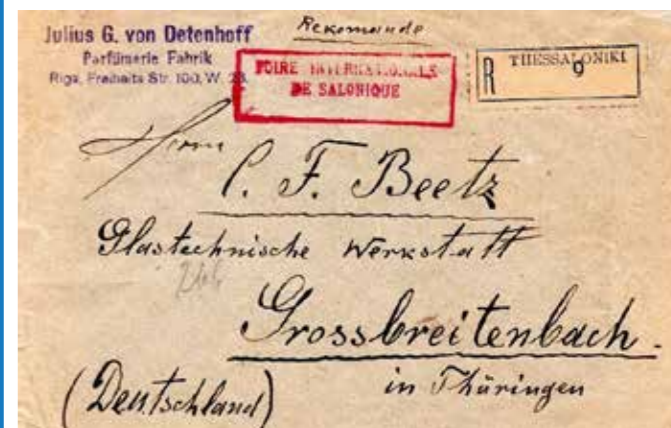 Julius G. von Detenhoff
Parfümerie Fabrik
Riga, Freiheits Str. 100, W. 23.
Rekomande
FOIRE INTERNATIONALE
DE SALONIQUE
R THESSALONIKI
9
Herrn
C. F. Beetz
Glastechnische Werkstatt
266
Grossbreitenbach.
in Thüringen
(Deutschland)